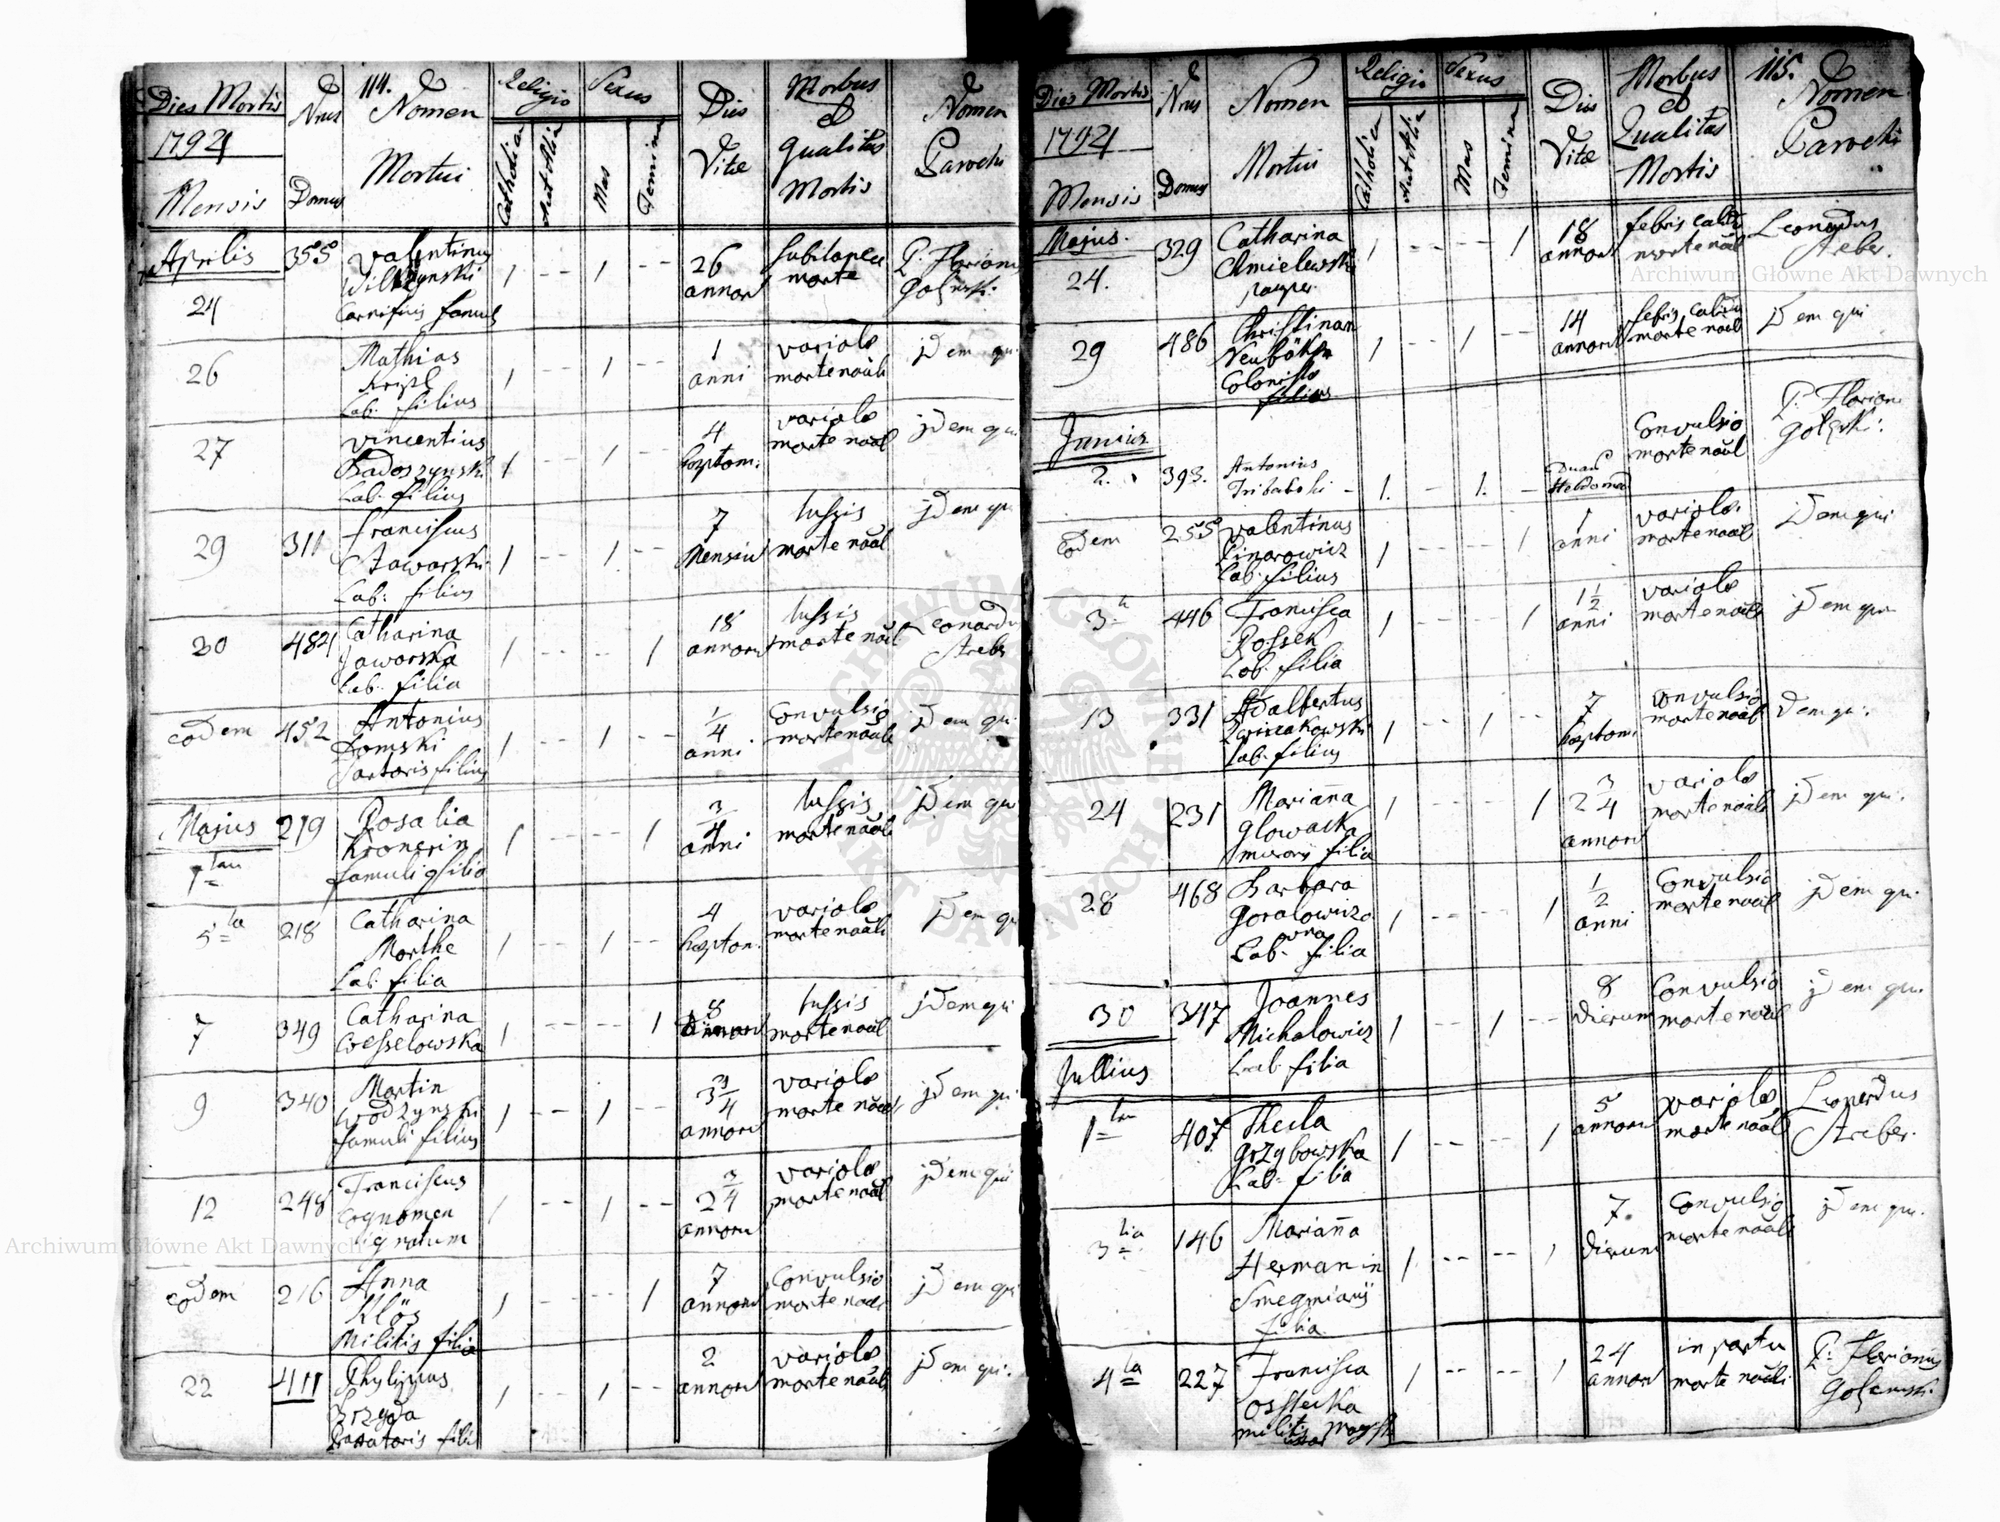 114.
Dies Mortis
1794
Mensis
Nrus
Domus
Nomen
Mortui
Religio
Catholica
Aut Alia
Sexus
Mas
Femina
Dies
Vitæ
Morbus
et
Qualitas
Mortis
Nomen
Parochi
Aprilis
24
355
Valentinus
Carnificis famul
1 -- 1 --
26
annor
morte
P: Florian
26
Mathias
Lab: filius
1 -- 1 --
1
anni
variolæ
morte nãali
jdem qui
27
Vincentius
Radoszynski
Lab: filius
1 -- 1 --
4
septem:
variolæ
morte nãal
jdem qui
29
311
Franciscus
Jaworski
Lab: filius
1 -- 1 --
7
Mensiu
tussis
morte nãal
jdem qui
30
484
Catharina
Jaworska
Lab: filia
1 -- -- 1
18
annoru
tussis
morte nãal
Leonardu
Streber
eodem
452
Antonius
Domski
Sartoris filius
1 -- 1 --
1/4
anni
Convulsio
morte nãali
jdem qui
Majus
1
219
Rosalia
Kronerin
famuli filia
1 -- -- 1
3/4
anni
tussis
morte nãali
jdem qui
5ta
218
Catharina
Morthe
Lab: filia
1 -- 1 --
4
septem:
variolæ
morte nãali
jdem qui
7
349
Catharina
Wesselowska
1 -- -- 1
8
tussis
morte nãal
jdem qui
9
340
Martin
Wodzynski
famuli filius
1 -- 1 --
3 3/4
annoru
variolæ
morte nãal
jdem qui
12
248
Franciscus
Cognomen
ignotum
1 -- 1 --
2 3/4
annoru
variolæ
morte nãal
jdem qui
eodem
216
Anna
Klös
Militis filia
1 -- -- 1
7
annoru
Convulsio
morte nãal
jdem qui
22
411
Phylipus
Brzyda
1 -- 1 --
2
annoru
variolæ
morte nãali
jdem qui.
115.
Dies Mortis
1794
Mensis
Nrus
Domus
Nomen
Mortui
Religio
Catholica
Aut Alia
Sexus
Mas
Femina
Dies
Vitæ
Morbus
et
Qualitas
Mortis
Nomen
Parochi
Majus.
24.
329
Catharina
Chmielewska
pauper
1 -- -- 1
18
annoru
febris calida
morte nãal
Leonardus
Streber.
29
486
Christinan
Neuböhm
Colonista
filius
1 -- 1 --
14
annoru
febris calida
morte nãal
jdem qui
Junius
2.
393.
Antonius
1. - 1. -
Duar
Hebdomad
Convulsio
morte nãal
P: Florian
eodem
255
Valentinus
Lab. filius
1 -- -- 1
1
anni
variolæ.
morte nãal
jdem qui
3
446
Francisca
Possek
Lab: filia
1 -- -- 1
1 1/2
anni
variolæ
morte nãali
jdem qui
13
331
Adalbertus
Lab: filius
1 -- 1 --
7
septem:
Convulsio
morte nãal
jdem qui.
24
231
Mariaña
Glowacka
murarij filia
1 -- -- 1
2 3/4
annoru
variolæ
morte nãali
jdem qui.
28
468
Barbara
Goralowiczo
wna
Lab: filia
1 -- -- 1
1/2
anni
Convulsio
morte nãal
jdem qui.
30
347
Joannes
Michalowicz
Lab: filia
1 -- 1 --
8
dierum
Convulsio
morte nãal
jdem qui.
Jullius
1
407
Thecla
Grzybowska
Lab: filia
1 -- -- 1
5
annoru
variolæ
morte nãal
Leonardus
Streber.
3tia
146
Mariaña
Hermanin
Smegmiarij
filia
1 -- -- 1
7.
dierum
Convulsio
morte nãali
jdem qui.
4ta
227
Francisca
militis
1 -- -- 1
24
annoru
in partu
morte nãali
P: Florianus
Archiwum Główne Akt Dawnych
Archiwum Główne Akt Dawnych
ARCHIWUM GŁÓWNE
AKT DAWNYCH